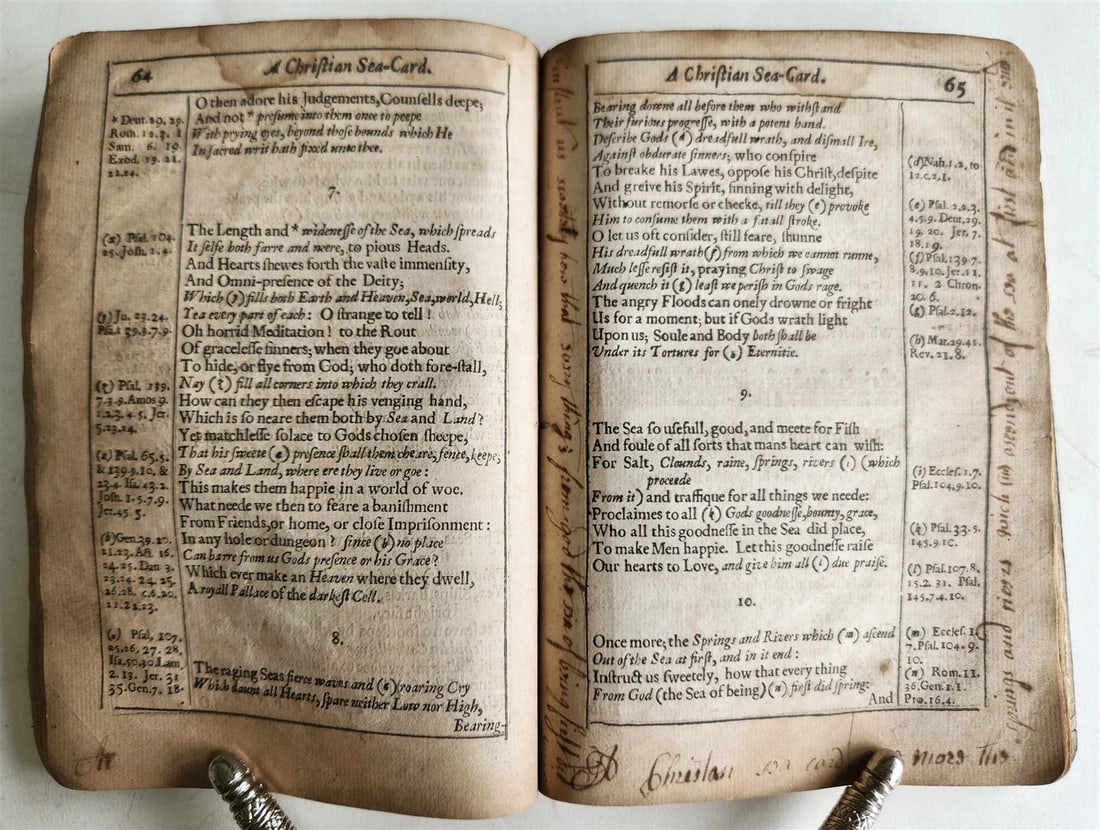 64
A Chriſtian Sea-Card.
O then adore his Judgements, Counſells deepe;
And not * preſume into them once to peepe
With prying eyes, beyond thoſe bounds which He
In ſacred writ hath fixed unto thee.
* Deut. 29. 29.
Rom. 12. 3. 1
Sam. 6. 19.
Exod. 19. 21.
22.24.
7.
The Length and * wideneſſe of the Sea, which ſpreads
It ſelfe both farre and neere, to pious Heads.
And Hearts ſhewes forth the vaſte immenſity,
And Omni-preſence of the Deity;
Which (y) fills both Earth and Heaven, Sea, world, Hell;
Yea every part of each: O ſtrange to tell!
Oh horrid Meditation! to the Rout
Of graceleſſe ſinners; when they goe about
To hide, or flye from God; who doth fore-ſtall,
Nay (t) fill all corners into which they crall.
How can they then eſcape his venging hand,
Which is ſo neare them both by Sea and Land?
Yet matchleſſe ſolace to Gods choſen ſheepe,
That his ſweete (a) preſence ſhall them cheare, fence, keepe,
By Sea and Land, where ere they live or goe:
This makes them happie in a world of woe.
What neede we then to feare a baniſhment
From Friends, or home, or cloſe Impriſonment:
In any hole or dungeon? ſince (b) no place
Can barre from us Gods preſence or his Grace?
Which ever make an Heaven where they dwell,
A royall Pallace of the darkeſt Cell.
(x) Pſal. 104.
25. Joſh. 1.4.
(y) Jer. 23.24.
Pſal. 139.3.7.9.
(t) Pſal. 139.
7.8.9. Amos 9.
1.2.3. 4. 5. Jer.
5.23.24.
(a) Pſal. 65.5.
& 139.9.10. &
23.4. Iſa. 43.2.
Joſh. 1.5.7.9.
Jer.45.5.
(b) Gen.39.20.
21.23. Act. 16.
24.25. Dan 3.
23.24. 24. 25.
26.28. c.6.20.
21.22.23.
8.
The raging Seas fierce waves and (c) roaring Cry
Which daunt all Hearts, ſpare neither Low nor High,
Bearing
(c) Pſal. 107.
25.26. 27. 28.
Iſa.50.30. Lam.
2. 13. Jer. 31
35. Gen. 7. 18.
A Chriſtian Sea-Card.
65
Bearing downe all before them who withſtand
Their furious progreſſe, with a potent hand.
Deſcribe Gods (d) dreadfull wrath, and diſmall Ire,
Againſt obdurate ſinners; who conſpire
To breake his Lawes, oppoſe his Chriſt, deſpite
And greive his Spirit, ſinning with delight,
Without remorſe or checke, till they (e) provoke
Him to conſume them with a fatall ſtroke.
O let us oft conſider, ſtill feare, ſhunne
His dreadfull wrath (f) from which we cannot runne,
Much leſſe reſiſt it, praying Chriſt to ſwage
And quench it (g) leaſt we periſh in Gods rage.
The angry Floods can onely drowne or fright
Us for a moment; but if Gods wrath light
Upon us; Soule and Body both ſhall be
Under its Tortures for (h) Eternitie.
(d) Nah. 1.2. to
12. c.2.1.
(e) Pſal. 2.2.3.
4.5.9. Deut. 29.
19. 20. Jer. 7.
18.19.
(f) Pſal. 139.7.
8.9.10. Jer.11.
11. 2 Chron.
20.6.
(g) Pſal.2.12.
(h) Mat.29.41.
Rev. 21.8.
9.
The Sea ſo uſefull, good, and meete for Fiſh
And foule of all ſorts that mans heart can wiſh:
For Salt, Clounds, raine, ſprings, rivers (i) (which
proceede
From it) and traffique for all things we neede:
Proclaimes to all (k) Gods goodneſſe, bounty, grace,
Who all this goodneſſe in the Sea did place,
To make Men happie. Let this goodneſſe raiſe
Our hearts to Love, and give him all (l) due praiſe.
(i) Eccleſ. 1.7.
Pſal.104.9.10.
(k) Pſal. 33.5.
145.9.10.
(l) Pſal.107.8.
15.2. 31. Pſal.
145.7.4.10.
10.
Once more; the Springs and Rivers which (m) aſcend
Out of the Sea at firſt, and in it end:
Inſtruct us ſweetely, how that every thing
From God (the Sea of being) (n) firſt did ſpring:
And
(m) Eccleſ. 1.
7. Pſal.104.9.
10.
(n) Rom. 11.
36. Gen. 1.1.
Pro.16.4.
A Christian sea card
more the
springs and rivers which (m) ascend out of the sea at first and in it end
instruct us sweetly how that every thing from god the sea of being first did